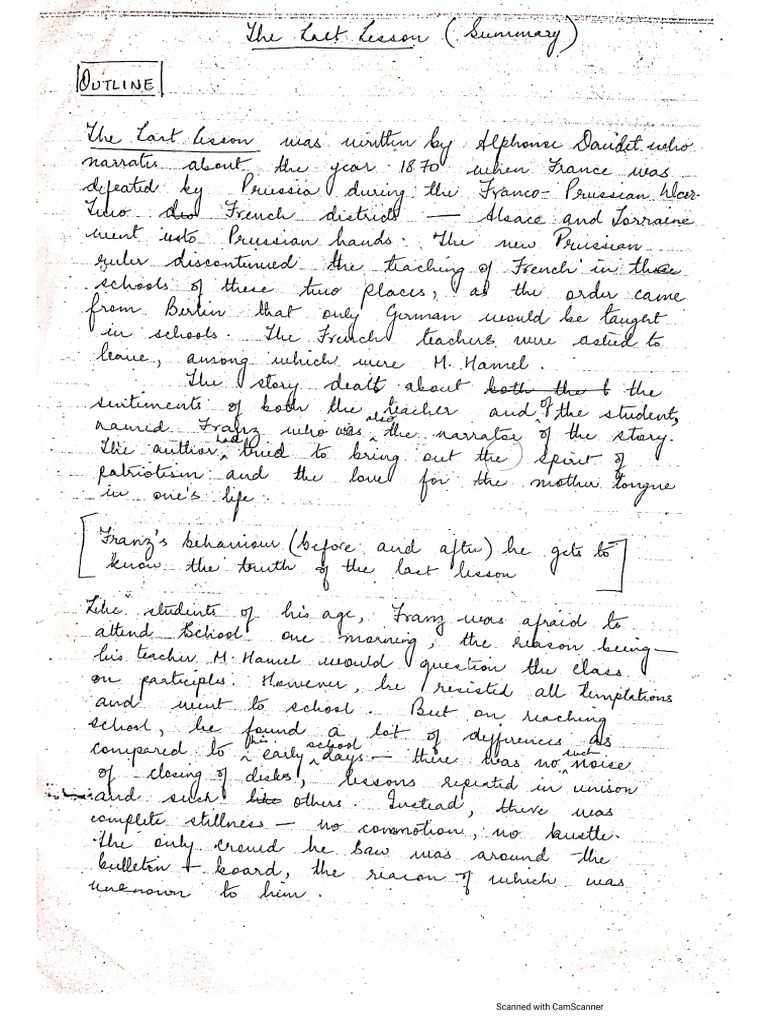 The Last Lesson (Summary)
OUTLINE
The Last Lesson was written by Alphonse Daudet who
narrates about the year 1870 when France was
defeated by Prussia during the Franco-Prussian War.
Two French districts — Alsace and Lorraine
went into Prussian hands. The new Prussian
ruler discontinued the teaching of French in these
schools of these two places, as the order came
from Berlin that only German would be taught
in schools. The French teachers were asked to
leave, among which were M. Hamel.
The story dealt about both the t the
sentiments of both the teacher and of the student,
named Franz who was also the narrator of the story.
The author had tried to bring out the spirit of
patriotism and the love for the mother tongue
in one's life.
[Franz's behaviour (before and after) he gets to
know the truth of the last lesson]
Like students of his age, Franz was afraid to
attend School one morning, the reason being—
his teacher M. Hamel would question the class
on participles. However, he resisted all temptations
and went to school. But on reaching
school, he found a lot of differences as
compared to his early school days — there was no such noise
of closing of disks, lessons repeated in unison
and such like others. Instead, there was
complete stillness — no commotion, no bustle.
The only crowd he saw was around the
bulletin + board, the reason of which was
unknown to him.
Scanned with CamScanner